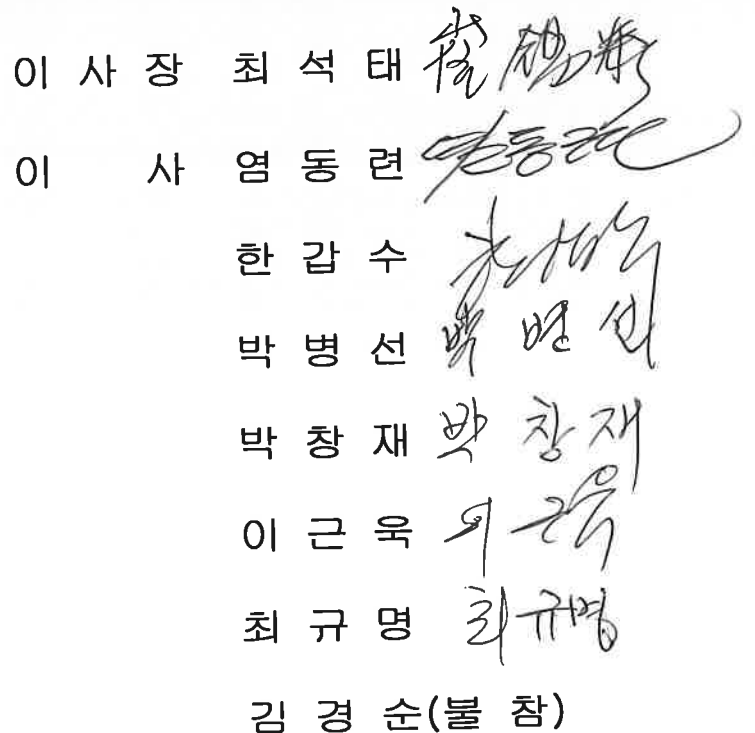 이 사 장 최 석 태 崔
이 사 염 동 련 염동련
한 갑 수 한갑수
박 병 선 박 병 선
박 창 재 박 창 재
이 근 욱 이 근욱
최 규 명 최규명
김 경 순(불 참)